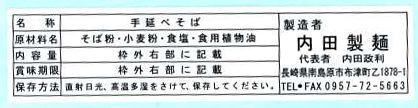 名称 手延べそば
原材料名 そば粉・小麦粉・食塩・食用植物油
内容量 枠外右部に記載
賞味期限 枠外右部に記載
保存方法 直射日光、高温多湿をさけて、保存してください。
製造者
内田製麺
代表者 内田政利
長崎県南島原市布津町乙1878-1
TEL•FAX 0957-72-5663